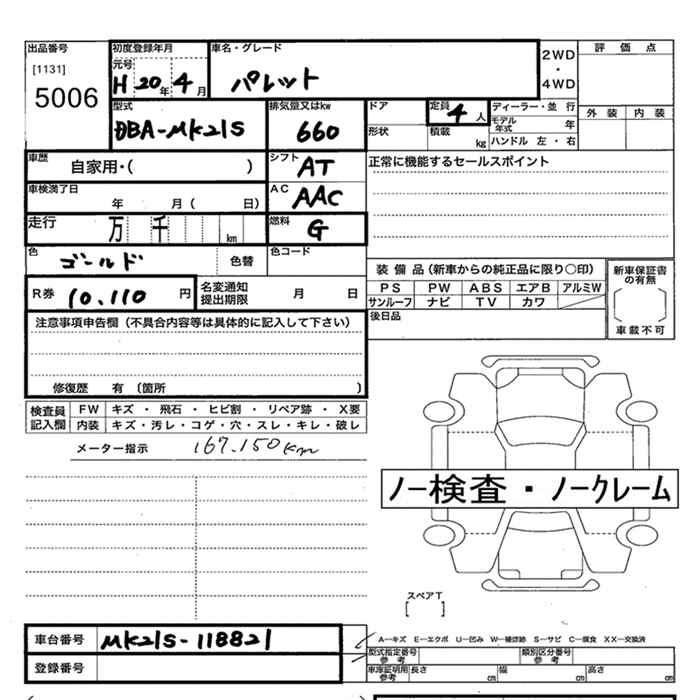 出品番号 初度登録年月 車名・グレード 2WD・4WD 評価点
[1131] 元号
5006 H 20年 4月 パレット
型式 排気量又はkw ドア 定員 4人 ディーラー・並行 外装 内装
DBA-MK21S 660 形状 積載 kg モデル年式 年
ハンドル 左・右
車歴 自家用・( ) シフト AT 正常に機能するセールスポイント
車検満了日 年 月( 日) AC AAC
走行 万 千 km 燃料 G
色 ゴールド 色替 色コード
装備品(新車からの純正品に限り○印) 新車保証書の有無
R券 10,110 円 名変通知提出期限 月 日 PS PW ABS エアB アルミW
サンルーフ ナビ TV カワ
注意事項申告欄(不具合内容等は具体的に記入して下さい) 後日品 車載不可
修復歴 有 (箇所 )
検査員記入欄 FW キズ・飛石・ヒビ割・リペア跡・X要
内装 キズ・汚レ・コゲ・穴・スレ・キレ・破レ
メーター指示 167,150km
ノー検査・ノークレーム
スペアT
[ ]
車台番号 MK21S-118821 A−キズ E−エクボ U−凹み W−補修跡 S−サビ C−腐食 XX−交換済
型式指定番号 参考 類別区分番号 参考
登録番号 車庫証明用 参考 長さ cm 幅 cm 高さ cm